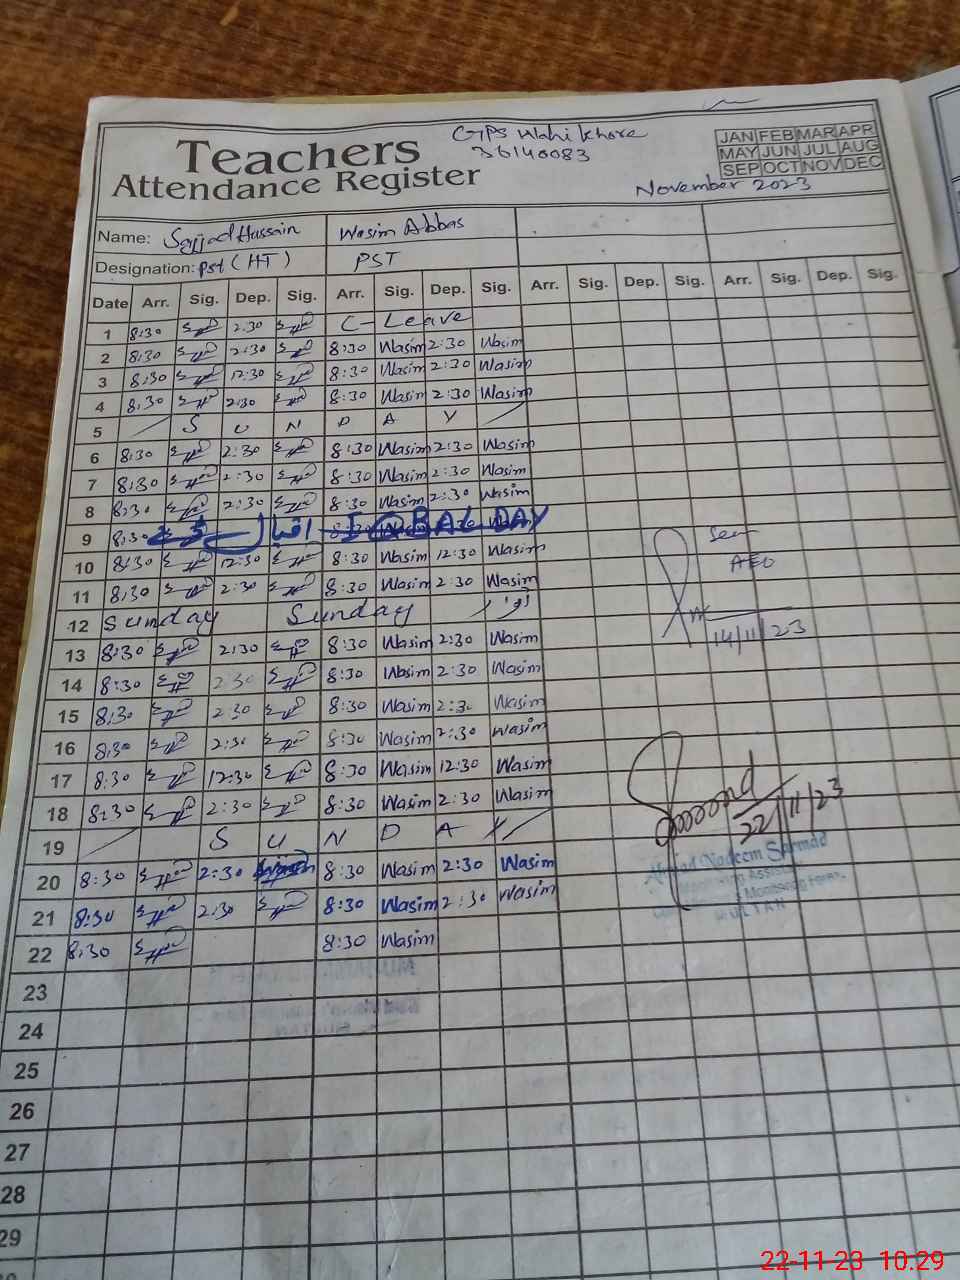 Teachers
Attendance Register
GPS Wahi Khore
36140083
JAN FEB MAR APR
MAY JUN JUL AUG
SEP OCT NOV DEC
November 2023
Name: Sajjad Hussain Wasim Abbas
Designation: Pst (HT) PST
Date Arr. Sig. Dep. Sig. Arr. Sig. Dep. Sig. Arr. Sig. Dep. Sig. Arr. Sig. Dep. Sig.
1 8:30 2:30 C-Leave
2 8:30 2:30 8:30 Wasim 2:30 Wasim
3 8:30 12:30 8:30 Wasim 2:30 Wasim
4 8:30 2:30 8:30 Wasim 2:30 Wasim
5 S U N D A Y
6 8:30 2:30 8:30 Wasim 2:30 Wasim
7 8:30 2:30 8:30 Wasim 2:30 Wasim
8 8:30 2:30 8:30 Wasim 2:30 Wasim
9 8:30 اقبال IQBAL DAY
10 8:30 12:30 8:30 Wasim 12:30 Wasim
11 8:30 2:30 8:30 Wasim 2:30 Wasim
12 Sunday Sunday اتوار
13 8:30 2:30 8:30 Wasim 2:30 Wasim
14 8:30 2:30 8:30 Wasim 2:30 Wasim
15 8:30 2:30 8:30 Wasim 2:30 Wasim
16 8:30 2:30 8:30 Wasim 2:30 Wasim
17 8:30 12:30 8:30 Wasim 12:30 Wasim
18 8:30 2:30 8:30 Wasim 2:30 Wasim
19 S U N D A Y
20 8:30 2:30 8:30 Wasim 2:30 Wasim
21 8:30 2:30 8:30 Wasim 2:30 Wasim
22 8:30 8:30 Wasim
23
24
25
26
27
28
29
Seen
AEO
14/11/23
22/11/23
Ahmad Nadeem Sarmad
Monitoring Assistant
MULTAN
22-11-23 10.29